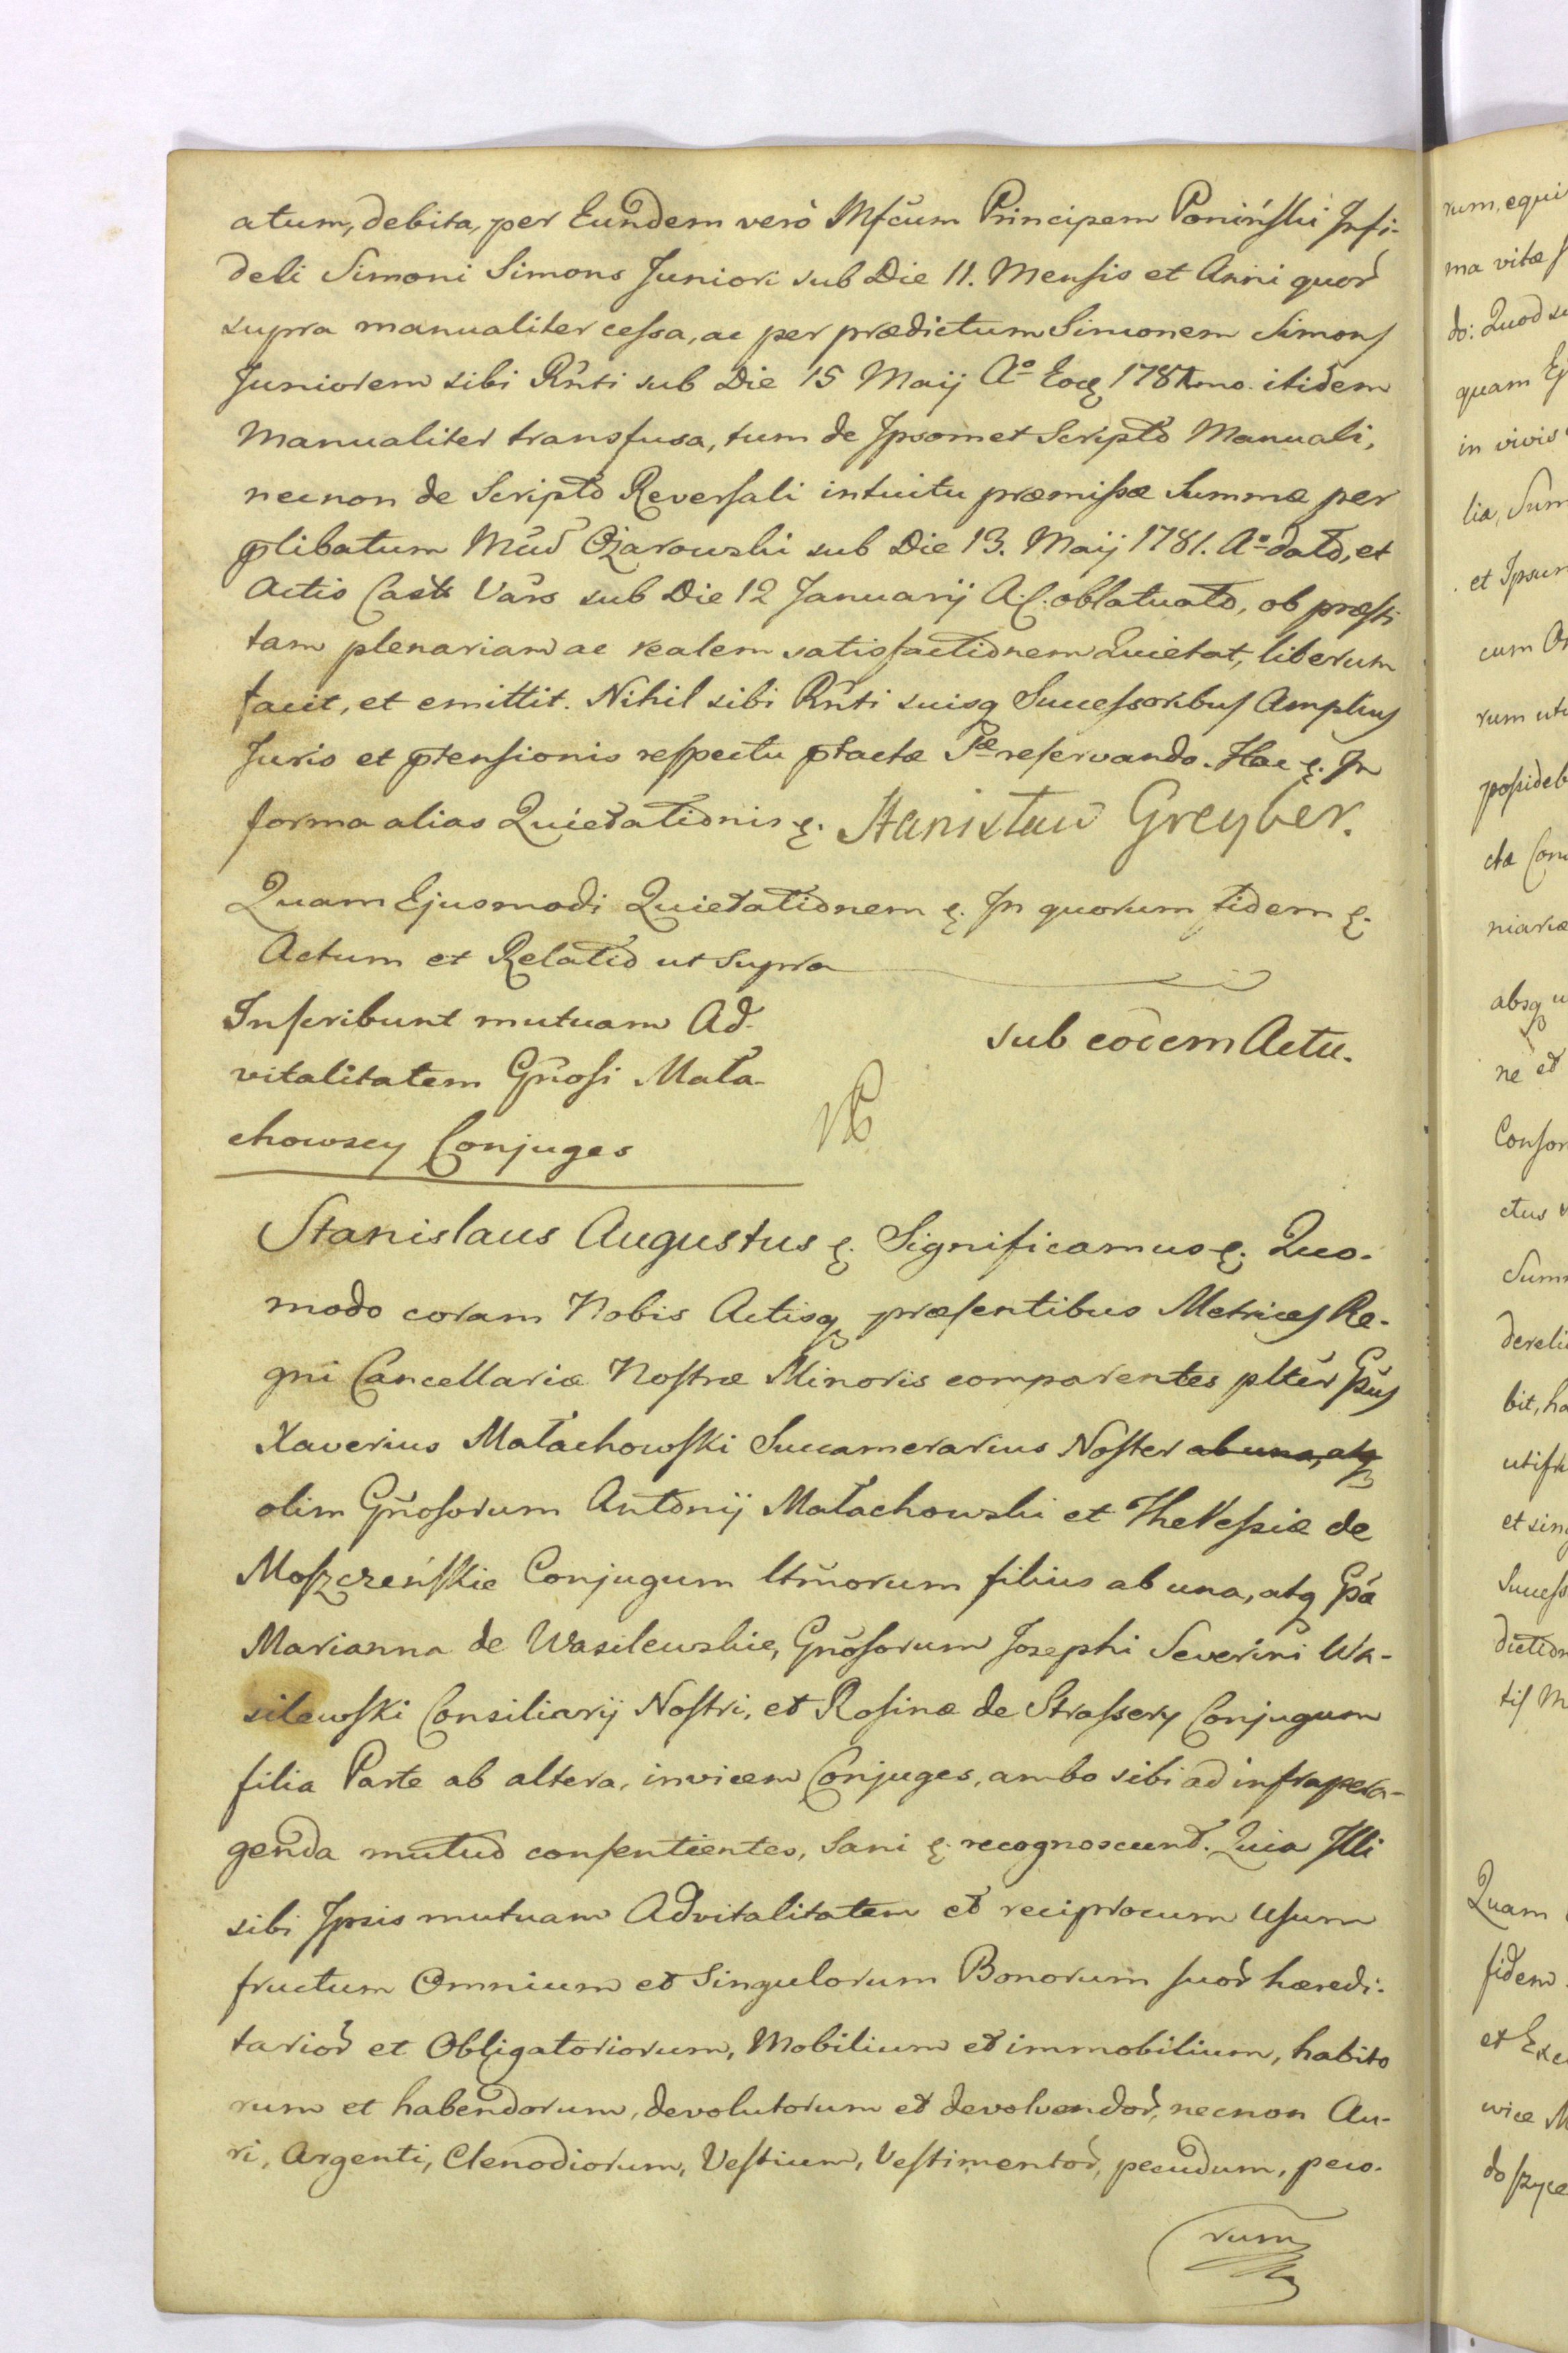 atum, debita, per Eundem verò Mfcum Principem Poniński Infi-
deli Simoni Simons Juniori sub Die 11. Mensis et Anni quor
supra manualiter cessa, ac per prædictum Simonem Simons
Juniorem sibi Rnti sub Die 15 Maij Aº Eoq 1781mo. itidem
Manualiter transfusa, tum de Ipsomet Scripto Manuali,
necnon de Scripto Reversali intuitu præmissæ Summæ per
plibatum Mcum Ożarowski sub Die 13. Maij 1781. Aº dato, et
Actis Castr Vars sub Die 12 Januarij A. C. oblatuato, ob præsti
tam plenariam ac realem satisfactionem Quietat, liberum
facit, et emittit. Nihil sibi Rnti suisq Successoribus Amplius
Juris et ptensionis respectu ptactæ Sæ reservando. Hac &. In
forma alias Quietationis &. Stanisław Greyber.
Quam Ejusmodi Quietationem &. In quorum fidem &.
Actum et Relatio ut supra
Inscribunt mutuam Ad-
vitalitatem Gnosi Mała-
chowscy Conjuges
sub eodem Actu.
Stanislaus Augustus &. Significamus &. Quo-
modo coram Nobis Actisq præsentibus Metrices Re-
gni Cancellariæ Nostræ Minoris comparentes plter Gsus
Xaverius Małachowski Succamerarius Noster ab una, atq
olim Gnosorum Antonij Małachowski et Theressiæ de
Moszczeńskie Conjugum ltmorum filius ab una, atq Gsa
Marianna de Wasilewskie, Gnosorum Josephi Severini Wa-
silewski Consiliarij Nostri, et Rosinæ de Strassery Conjugum
filia Parte ab altera, invicem Conjuges, ambo sibi ad infrapera-
genda mutuo consentientes, Sani &. recognoscunt. Quia Illi
sibi Ipsis mutuam Advitalitatem et reciprocum Usum
fructum Omnium et Singulorum Bonorum suor hæredi-
tarior et Obligatoriorum, Mobilium et immobilium, habito
rum et habendorum, devolutorum et devolvendor, necnon Au-
ri, Argenti, Clenodiorum, Vestium, Vestimentor, pecudum, peco-
rum
rum, equi
ma vitæ
do: Quod su
quam Ej
in vivis
lia, Sum
et Ipsum
cum
rum uti
possideb
ctæ Con
niariæ
absq u
ne et
Consor
ctus
Summ
dereli
bit, ha
et sing
Success
diction
tis M
Quam
fidem
et Exce
vice M